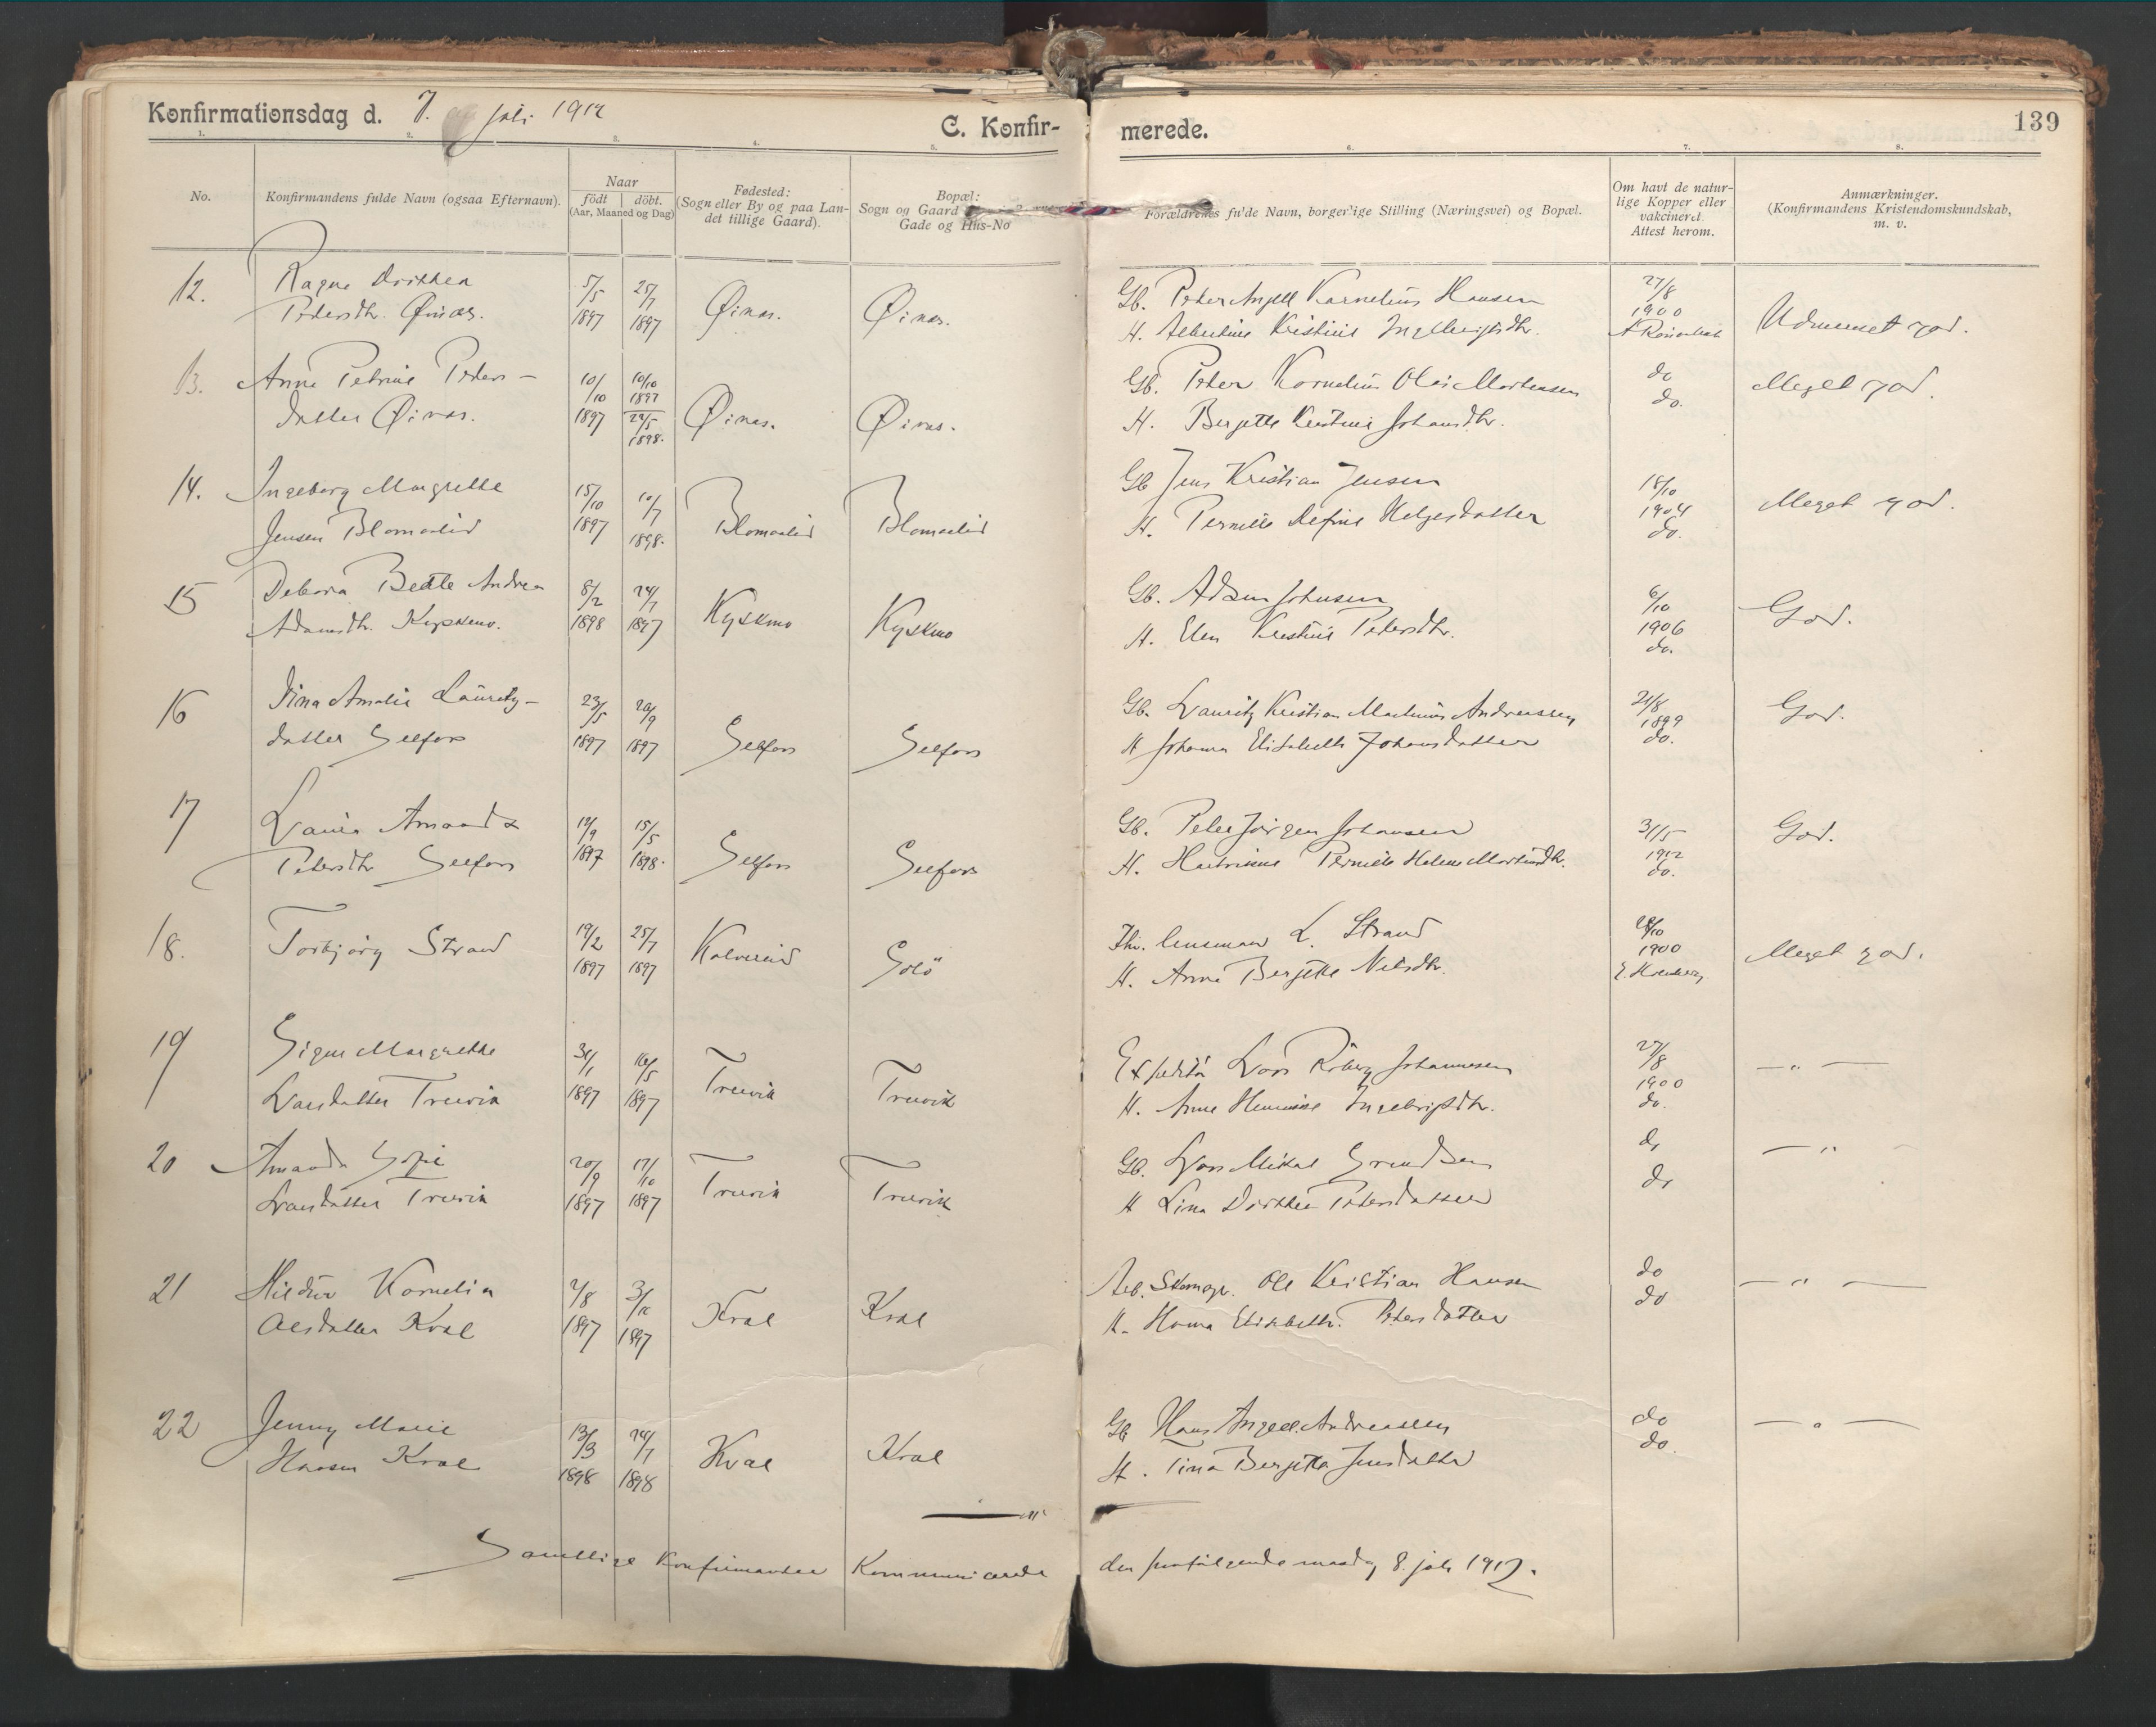 Konfirmationsdag d. 7. juli 1912
C. Konfir-
merede.
139
1. 2. 3. 4. 5. 6. 7. 8.
No.
Konfirmandens fulde Navn (ogsaa Efternavn).
Naar
födt | döbt.
(Aar, Maaned og Dag)
Fødested:
(Sogn eller By og paa Lan-
det tillige Gaard).
Bopæl:
Sogn og Gaard
Gade og Hus-No
Forældrenes fulde Navn, borgerlige Stilling (Næringsvei) og Bopæl.
Om havt de natur-
lige Kopper eller
vakcineret.
Attest herom.
Anmærkninger.
(Konfirmandens Kristendomskundskab,
m. v.
12.
Ragna Dorthea
Petersdtr. Øinas.
5/5 1897
25/7 1897
Øinas.
Øinas.
Gb. Peter Angell Kornelius Hansen
H. Albertine Kristine Ingebrigtsdtr.
27/8
1900
Udmerket god.
13.
Anne Petrine Peders-
datter Øinas.
10/10 1897
10/10 1897
29/5 1898.
Øinas.
Øinas.
Gb. Peter Kornelius Olai Mortensen
H. Bergitte Kristine Johansdtr.
do
do.
Meget god.
14.
Ingeborg Margrethe
Jensen Blomonlid
15/10 1897
10/7 1898.
Blomonlid
Blomonlid
Gb Jens Kristian Jensen
H. Pernille Helgesdatter
18/10
1904
do.
Meget god.
15
Debora Beate Andrea
Adamsdtr. Kyskmo.
8/2 1898
24/7 1897
Kyskmo
Kyskmo
Gb. Adam Johnsen
H. Elen Kristine Petersdtr.
6/10
1906
do.
God.
16
Dina Amalie Lauritz-
datter Selfors
23/5 1897
20/9 1897
Selfors
Selfors
Gb. Lauritz Kristian Martinius Andreassen
H Johanna Elisabeth Johansdatter
21/8
1899
do.
God.
17
Laura Amanda
Petersdtr Selfors
19/9 1897
15/5 1898.
Selfors
Selfors
Gb. Peter Jörgen Johansen
H. Pernille Helene Martinsdtr.
31/5
1912
do.
God.
18.
Torbjörg Strand
19/2 1897
25/7 1897
Kolvereid
Solö
Fhv. lensmand L. Strand
H. Anne Bergitte Nilsdtr.
28/10
1900
Meget god.
19
Signe Margrethe
Larsdatter Trevik
31/1 1897
16/5 1897
Trevik
Trevik
Expeditör Lars Johannesen
H. Anne Ingebrigtsdtr.
27/8
1900
do.
— " —
20
Amanda Sofie
Larsdatter Trevik
20/9 1897
17/10 1897
Trevik
Trevik
Gb. Lars Mikal
H Lina Dorthea Petersdatter
do
do
— " —
21
Hildur Kornelia
Olesdatter Kval
2/8 1897
3/10 1897
Kval
Kval
Arb. Skomgr. Ole Kristian Hansen
H. Hanna Elisabeth Petersdatter
do
do
— " —
22
Jenny Marie
Hansen Kval
13/3 1898
24/7 1898
Kval
Kval
Gb Hans Angell Andreassen
H. Tina Bergitta Jensdatter
do
do.
— " —
Samtlige Konfirmanter Kommunicerede den paafölgende mandag 8. juli 1912.